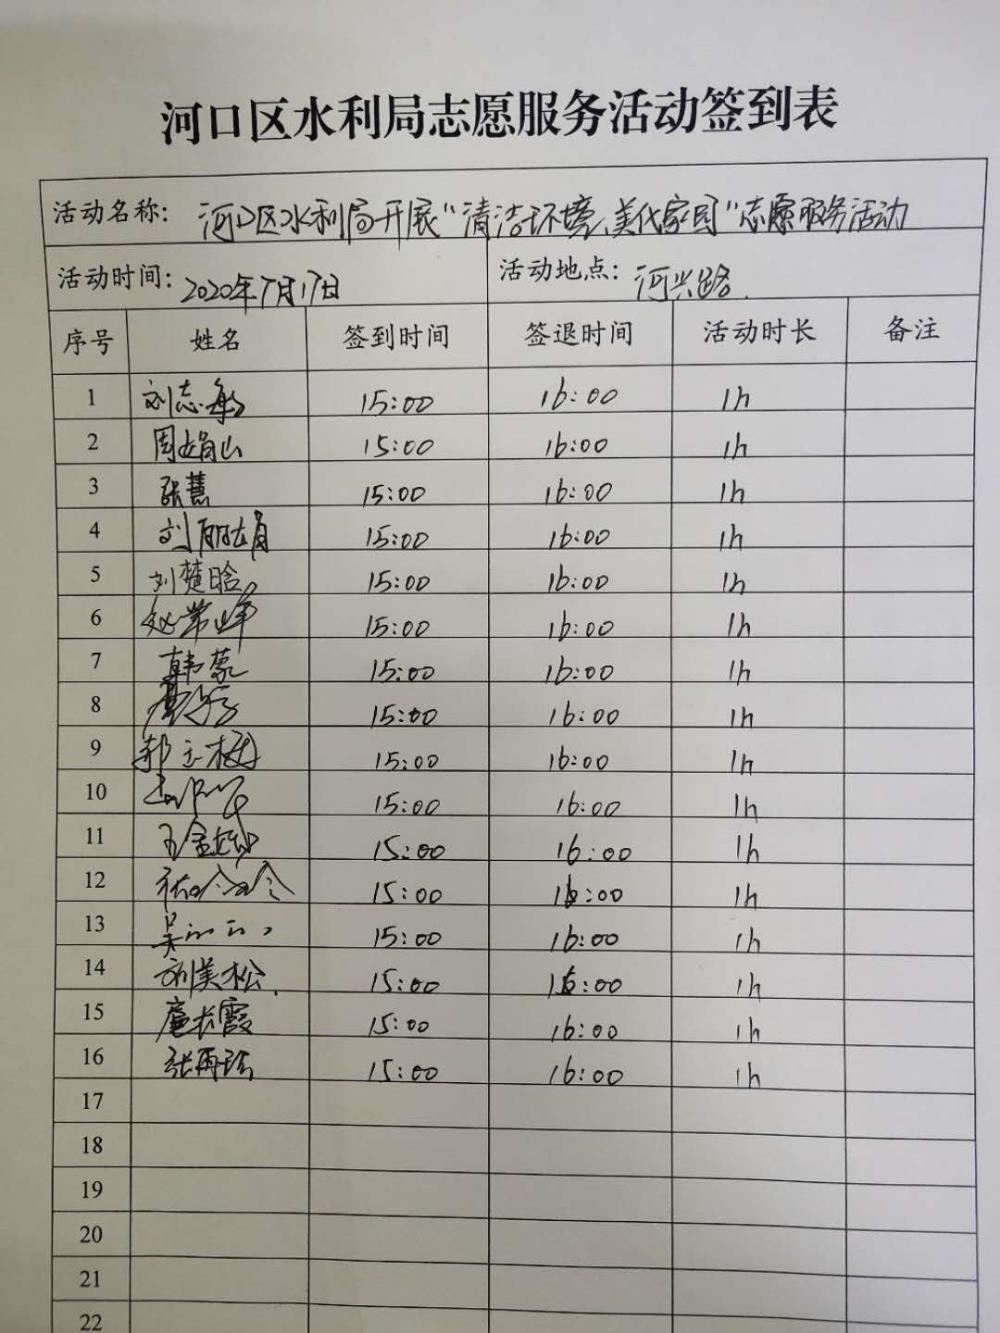 河口区水利局志愿服务活动签到表
活动名称: 河口区水利局开展"清洁环境、美化家园"志愿服务活动
活动时间: 2020年7月17日 活动地点: 河兴路
序号 姓名 签到时间 签退时间 活动时长 备注
1 刘志敏 15:00 16:00 1h
2 周娟山 15:00 16:00 1h
3 张慧 15:00 16:00 1h
4 刘丽娟 15:00 16:00 1h
5 刘楚晗 15:00 16:00 1h
6 赵常峰 15:00 16:00 1h
7 韩蒙 15:00 16:00 1h
8 15:00 16:00 1h
9 郭玉梅 15:00 16:00 1h
10 15:00 16:00 1h
11 王金 15:00 16:00 1h
12 15:00 16:00 1h
13 吴 15:00 16:00 1h
14 刘美松 15:00 16:00 1h
15 扈长霞 15:00 16:00 1h
16 张再 15:00 16:00 1h
17
18
19
20
21
22